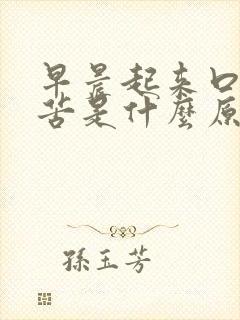 早晨起来口
苦是什麼原
孫玉芳